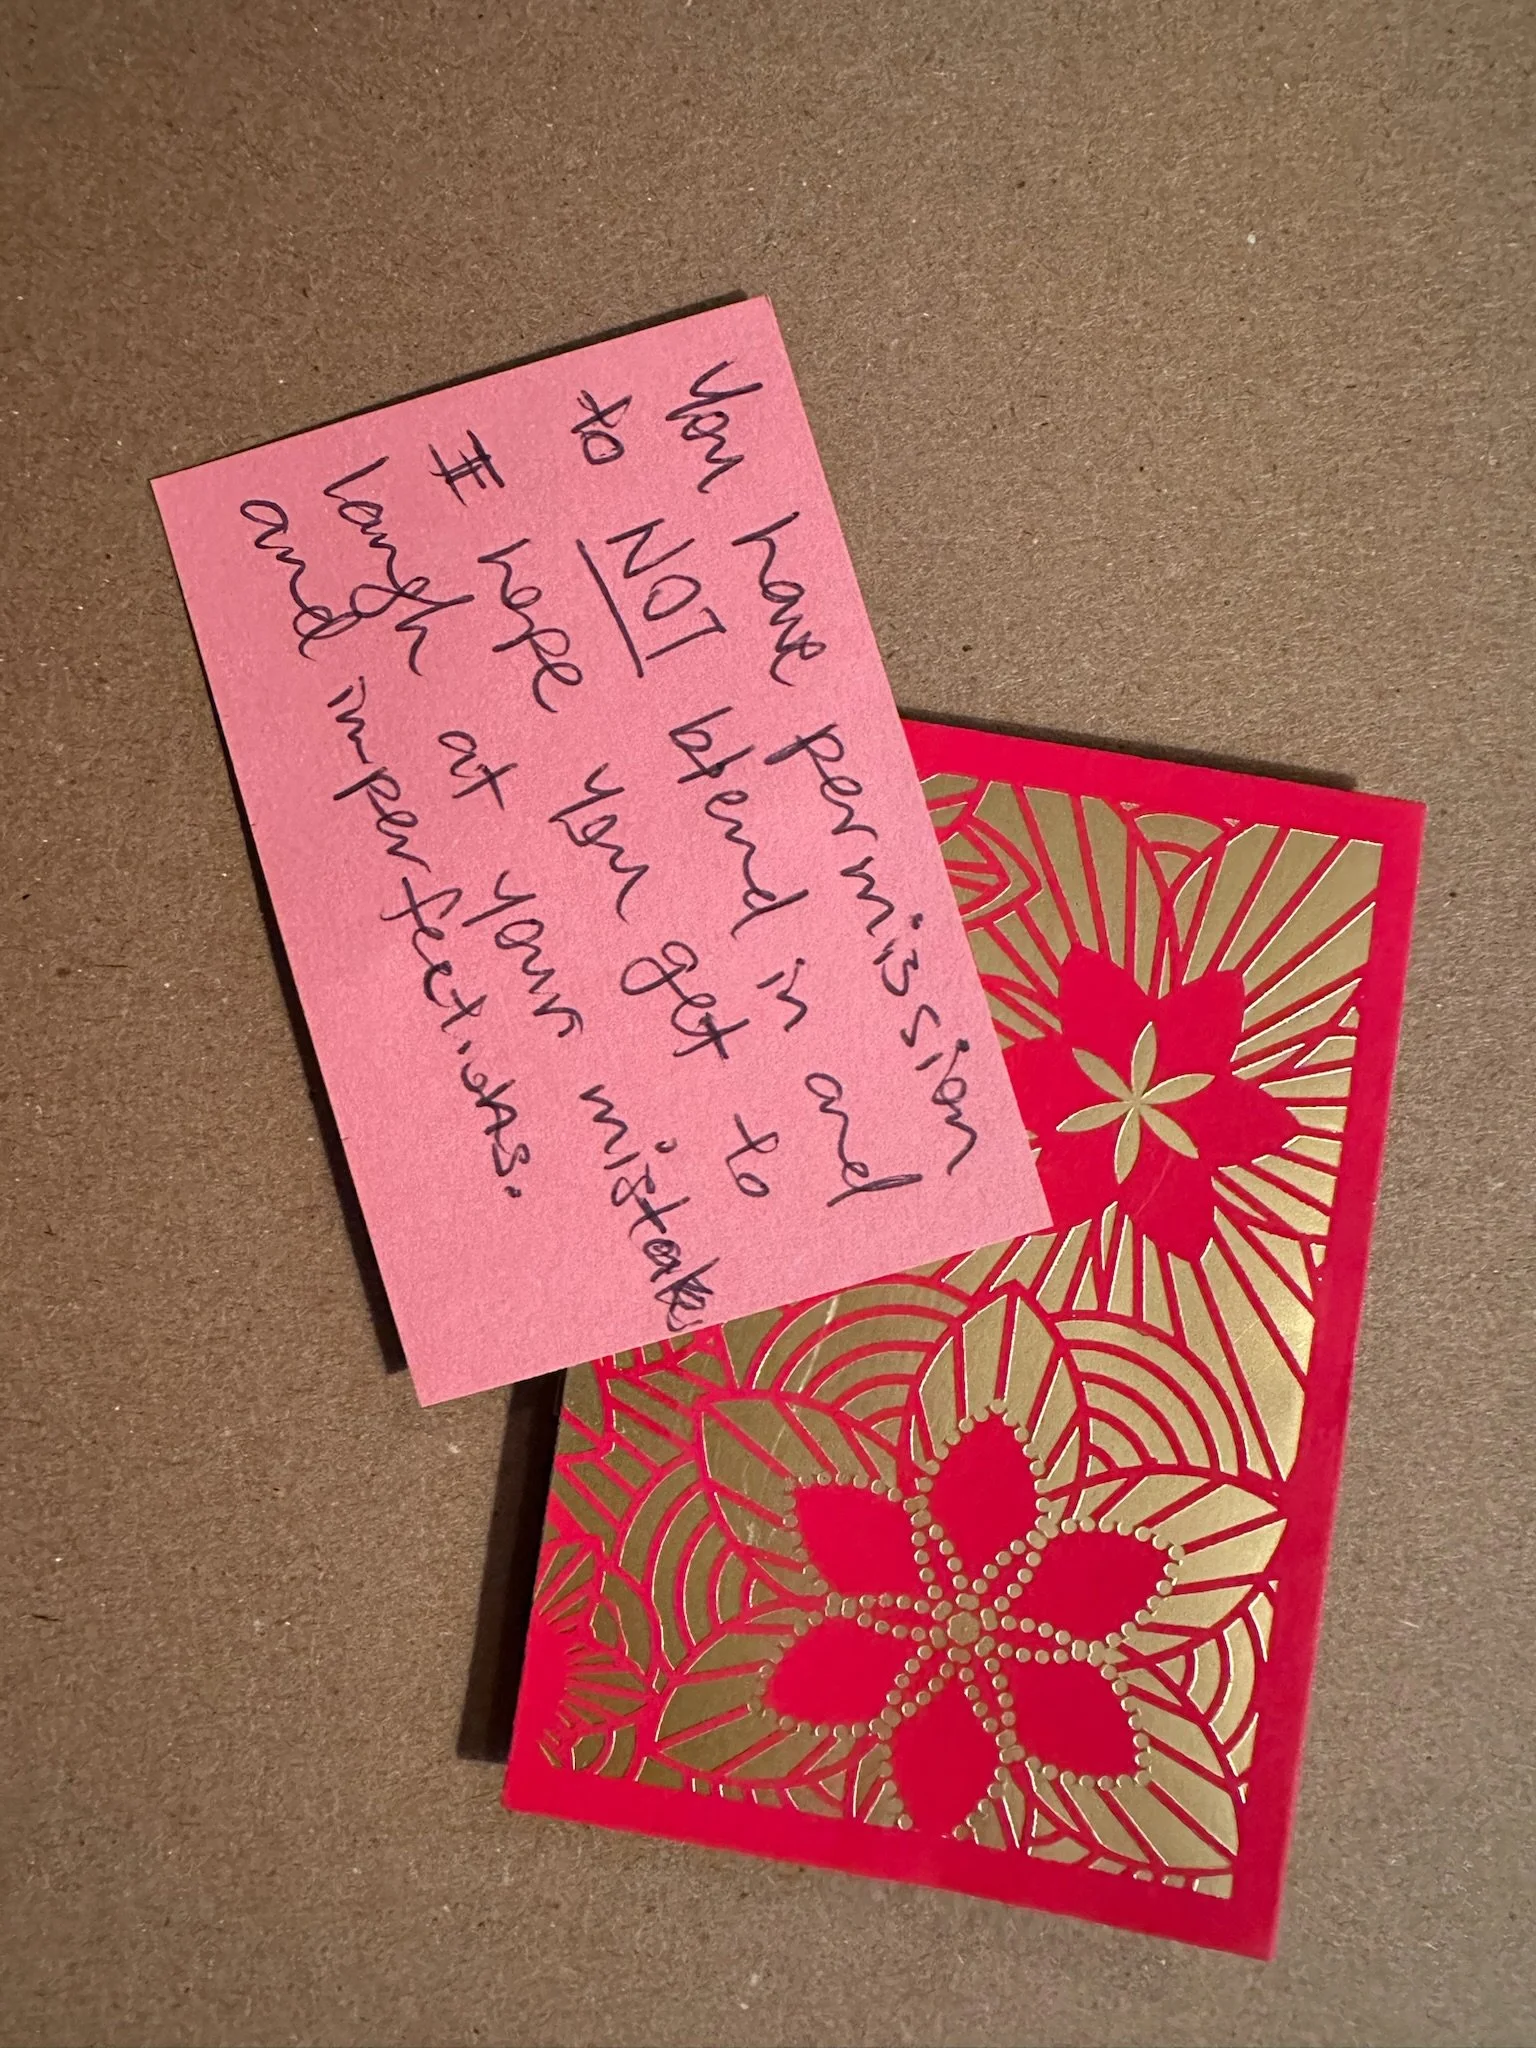 You have permission
to NOT blend in and
I hope you get to
laugh at your mistakes
and imperfections.